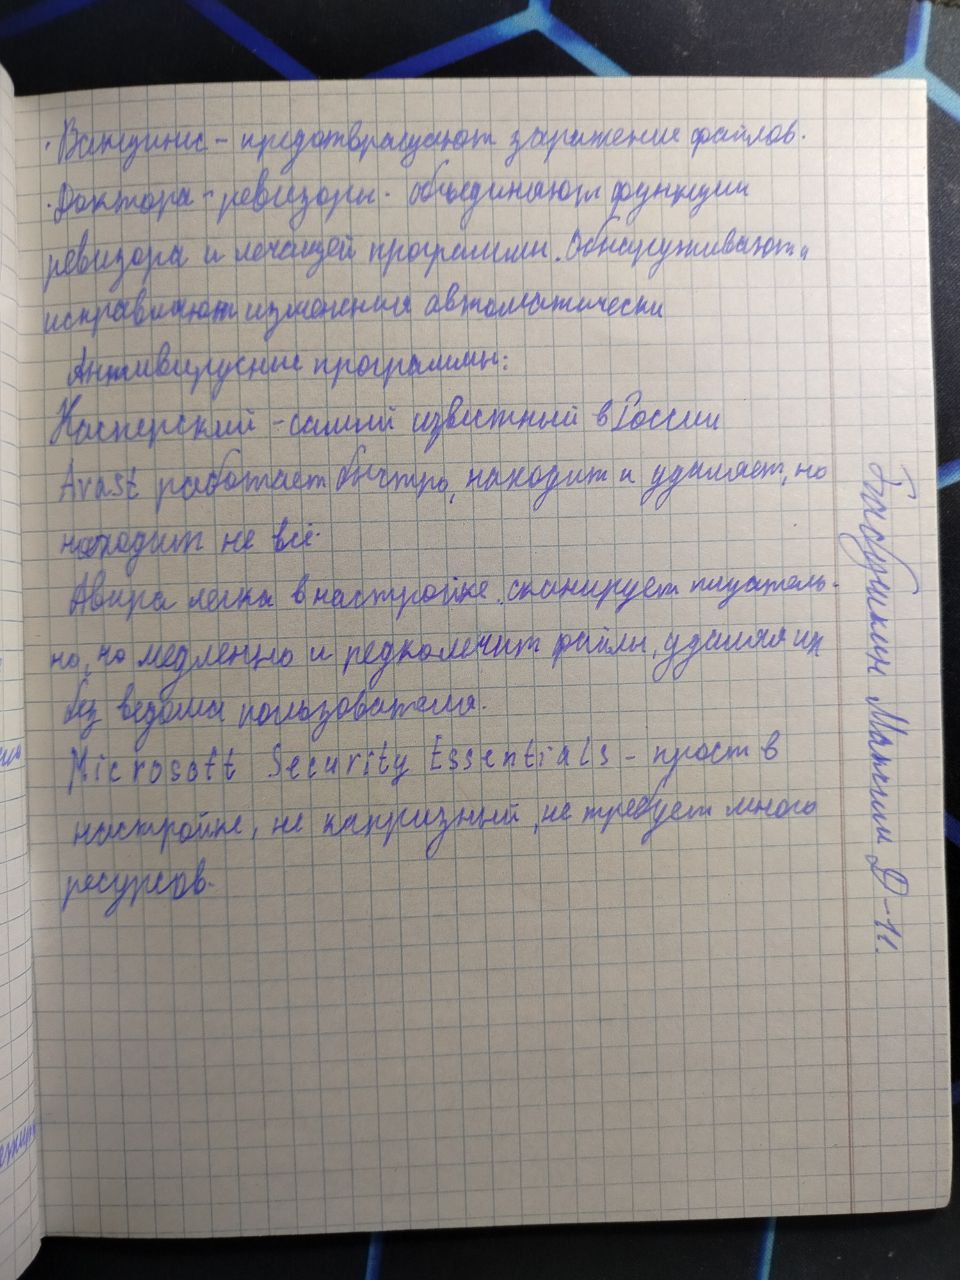 · Вакцины - предотвращают заражение файлов.
· Доктора - ревизоры. объединяют функции
ревизора и лечащей программы. Обнаруживают и
исправляют изменения автоматически
Антивирусные программы:
Касперский - самый известный в России
Avast работает быстро, находит и удаляет, но
находит не всё.
Авира легка в настройке. сканирует тщатель-
но, но медленно и редко лечит файлы, удаляя их
без ведома пользователя.
Microsoft Security Essentials - прост в
настройке, не капризный, не требует много
ресурсов.
Максим Д-11.